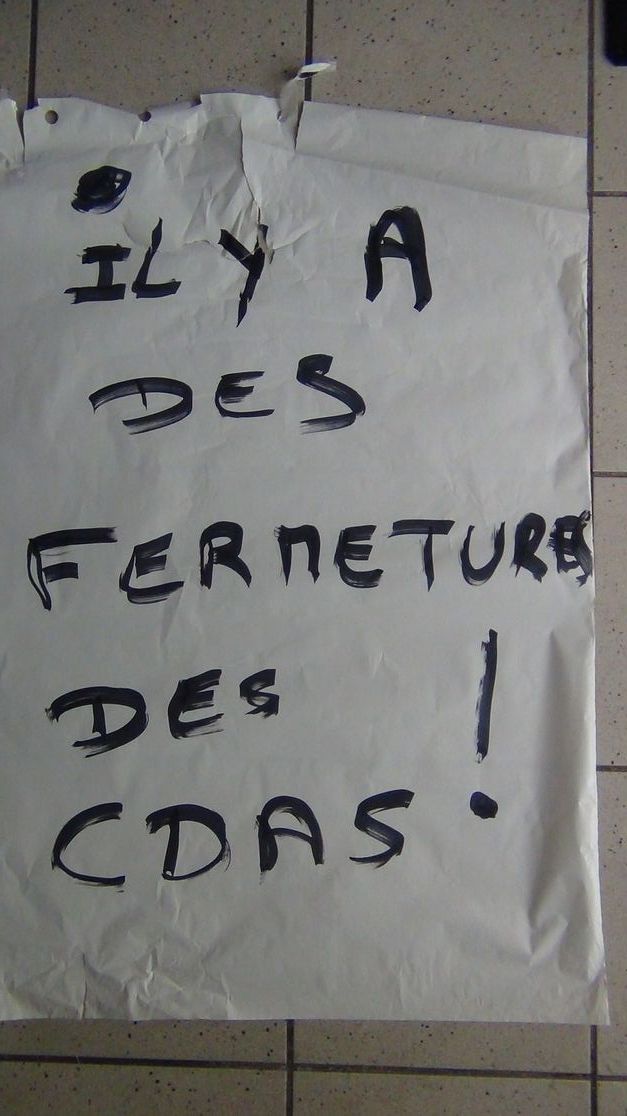 IL Y A
DES
FERMETURES
DES
CDAS !